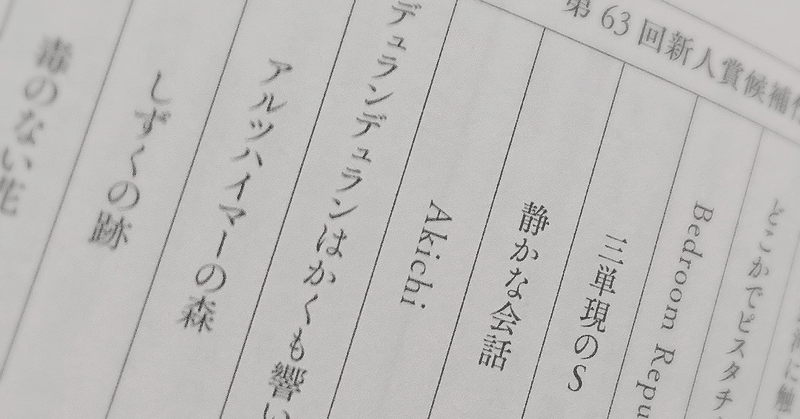 第63回新人賞候補作
に触
どこかでピスタチ
Bedroom Repu
三単現のS
静かな会話
Akichi
デュランデュランはかくも響い
アルツハイマーの森
しずくの跡
毒のない花